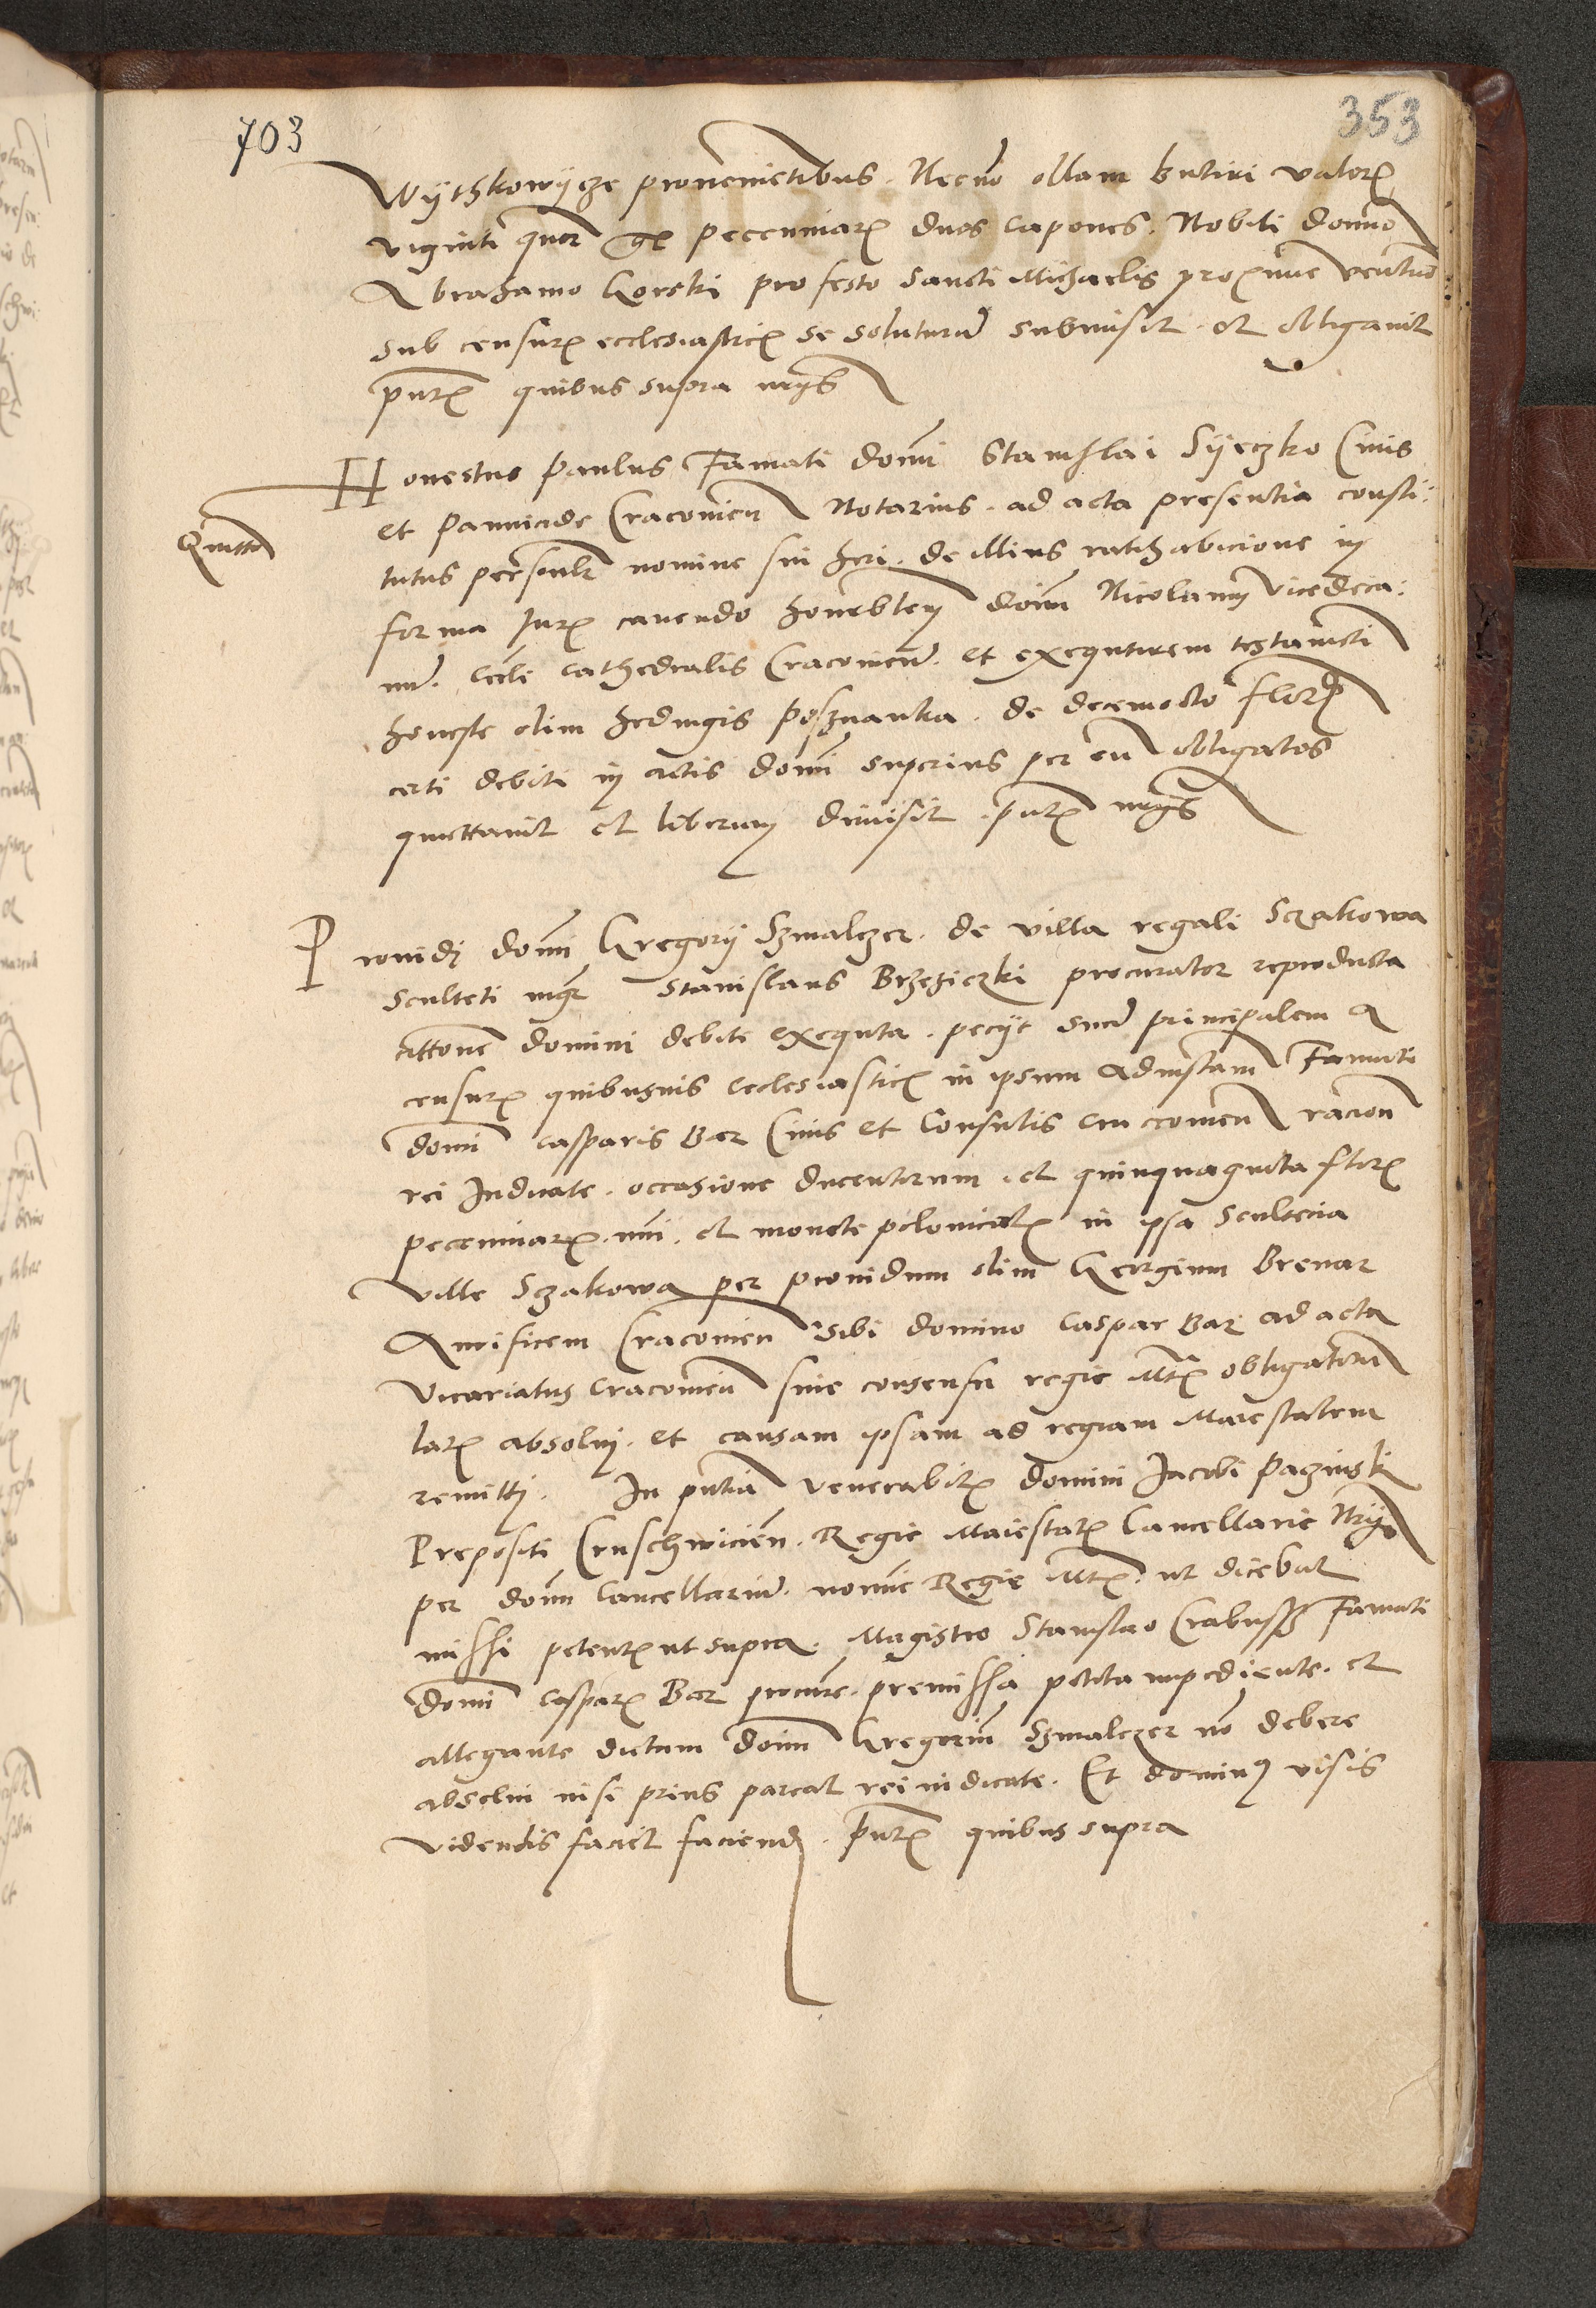 703
353
Wythkowycze provenientibus. Necno ollam butiri valoris
viginti quor gr pecuniar duos capones. Nobili domino
Abrahamo Gorski pro festo Sancti Michaelis proxime ventur
sub censuris ecclesiasticis se soluturu submisit et obligavit
pntibus quibus supra
Honestus Paulus Famati domi Stanislai Syeczko Civis
et pannicide Cracovien Notarius. ad acta presentia consti:
Quitta
tutus personalr nomine sui heri. de illius ratihabicione in
forma Juris cavendo honorablem doim Nicolaum vicedeca:
nu. eccle Cathedralis Cracovien. et exequtorem testamenti
honeste olim Hedwigis Posznanka. de decemocto floren
certi debiti in actis domi superius per eu obligatos
quittavit et liberum dimisit. pntibus
Providi domi Gregorii Szmalczer. de villa regali Sczakowa
Sculteti Stanislaus Brzeziczki procurator reproducta
domini debite exequta. peciit suu principalem a
censuris quibusvis ecclesiasticis in ipsum ad instam Famati
domi Casparis Ber Civis et Consulis Cracovien racion
rei Judicate. occasione ducentorum et quinquaginta floren
pecuniar. nui. et monete polonicalis in ipsa Scultecia
ville Sczakowa per providum olim Georgium Brenar
Aurificem Cracovien sibi domino Caspar Bar ad acta
Vicariatus Cracovien sine consensu regie Mtis obligatorum
latis absolvi. et causam ipsam ad regiam Maiestatem
remitti. In pntia venerabilis domini Jacobi Paczinski
Prepositi Cruschvicien. Regie Maiestatis Cancellarie Nrii
per dom Cancellariu. nomine Regie Mtis ut dicebat
missi petentis ut supra. Magistro Stanislao Crabussz Famati
domi Casparis Ber procure. premissa petita impediente. et
allegante dictum doim Gregoriu Szmalczer no debere
absolvi nisi prius pareat rei iudicate. Et dominus visis
videndis faciet faciend. pntibus quibus supra